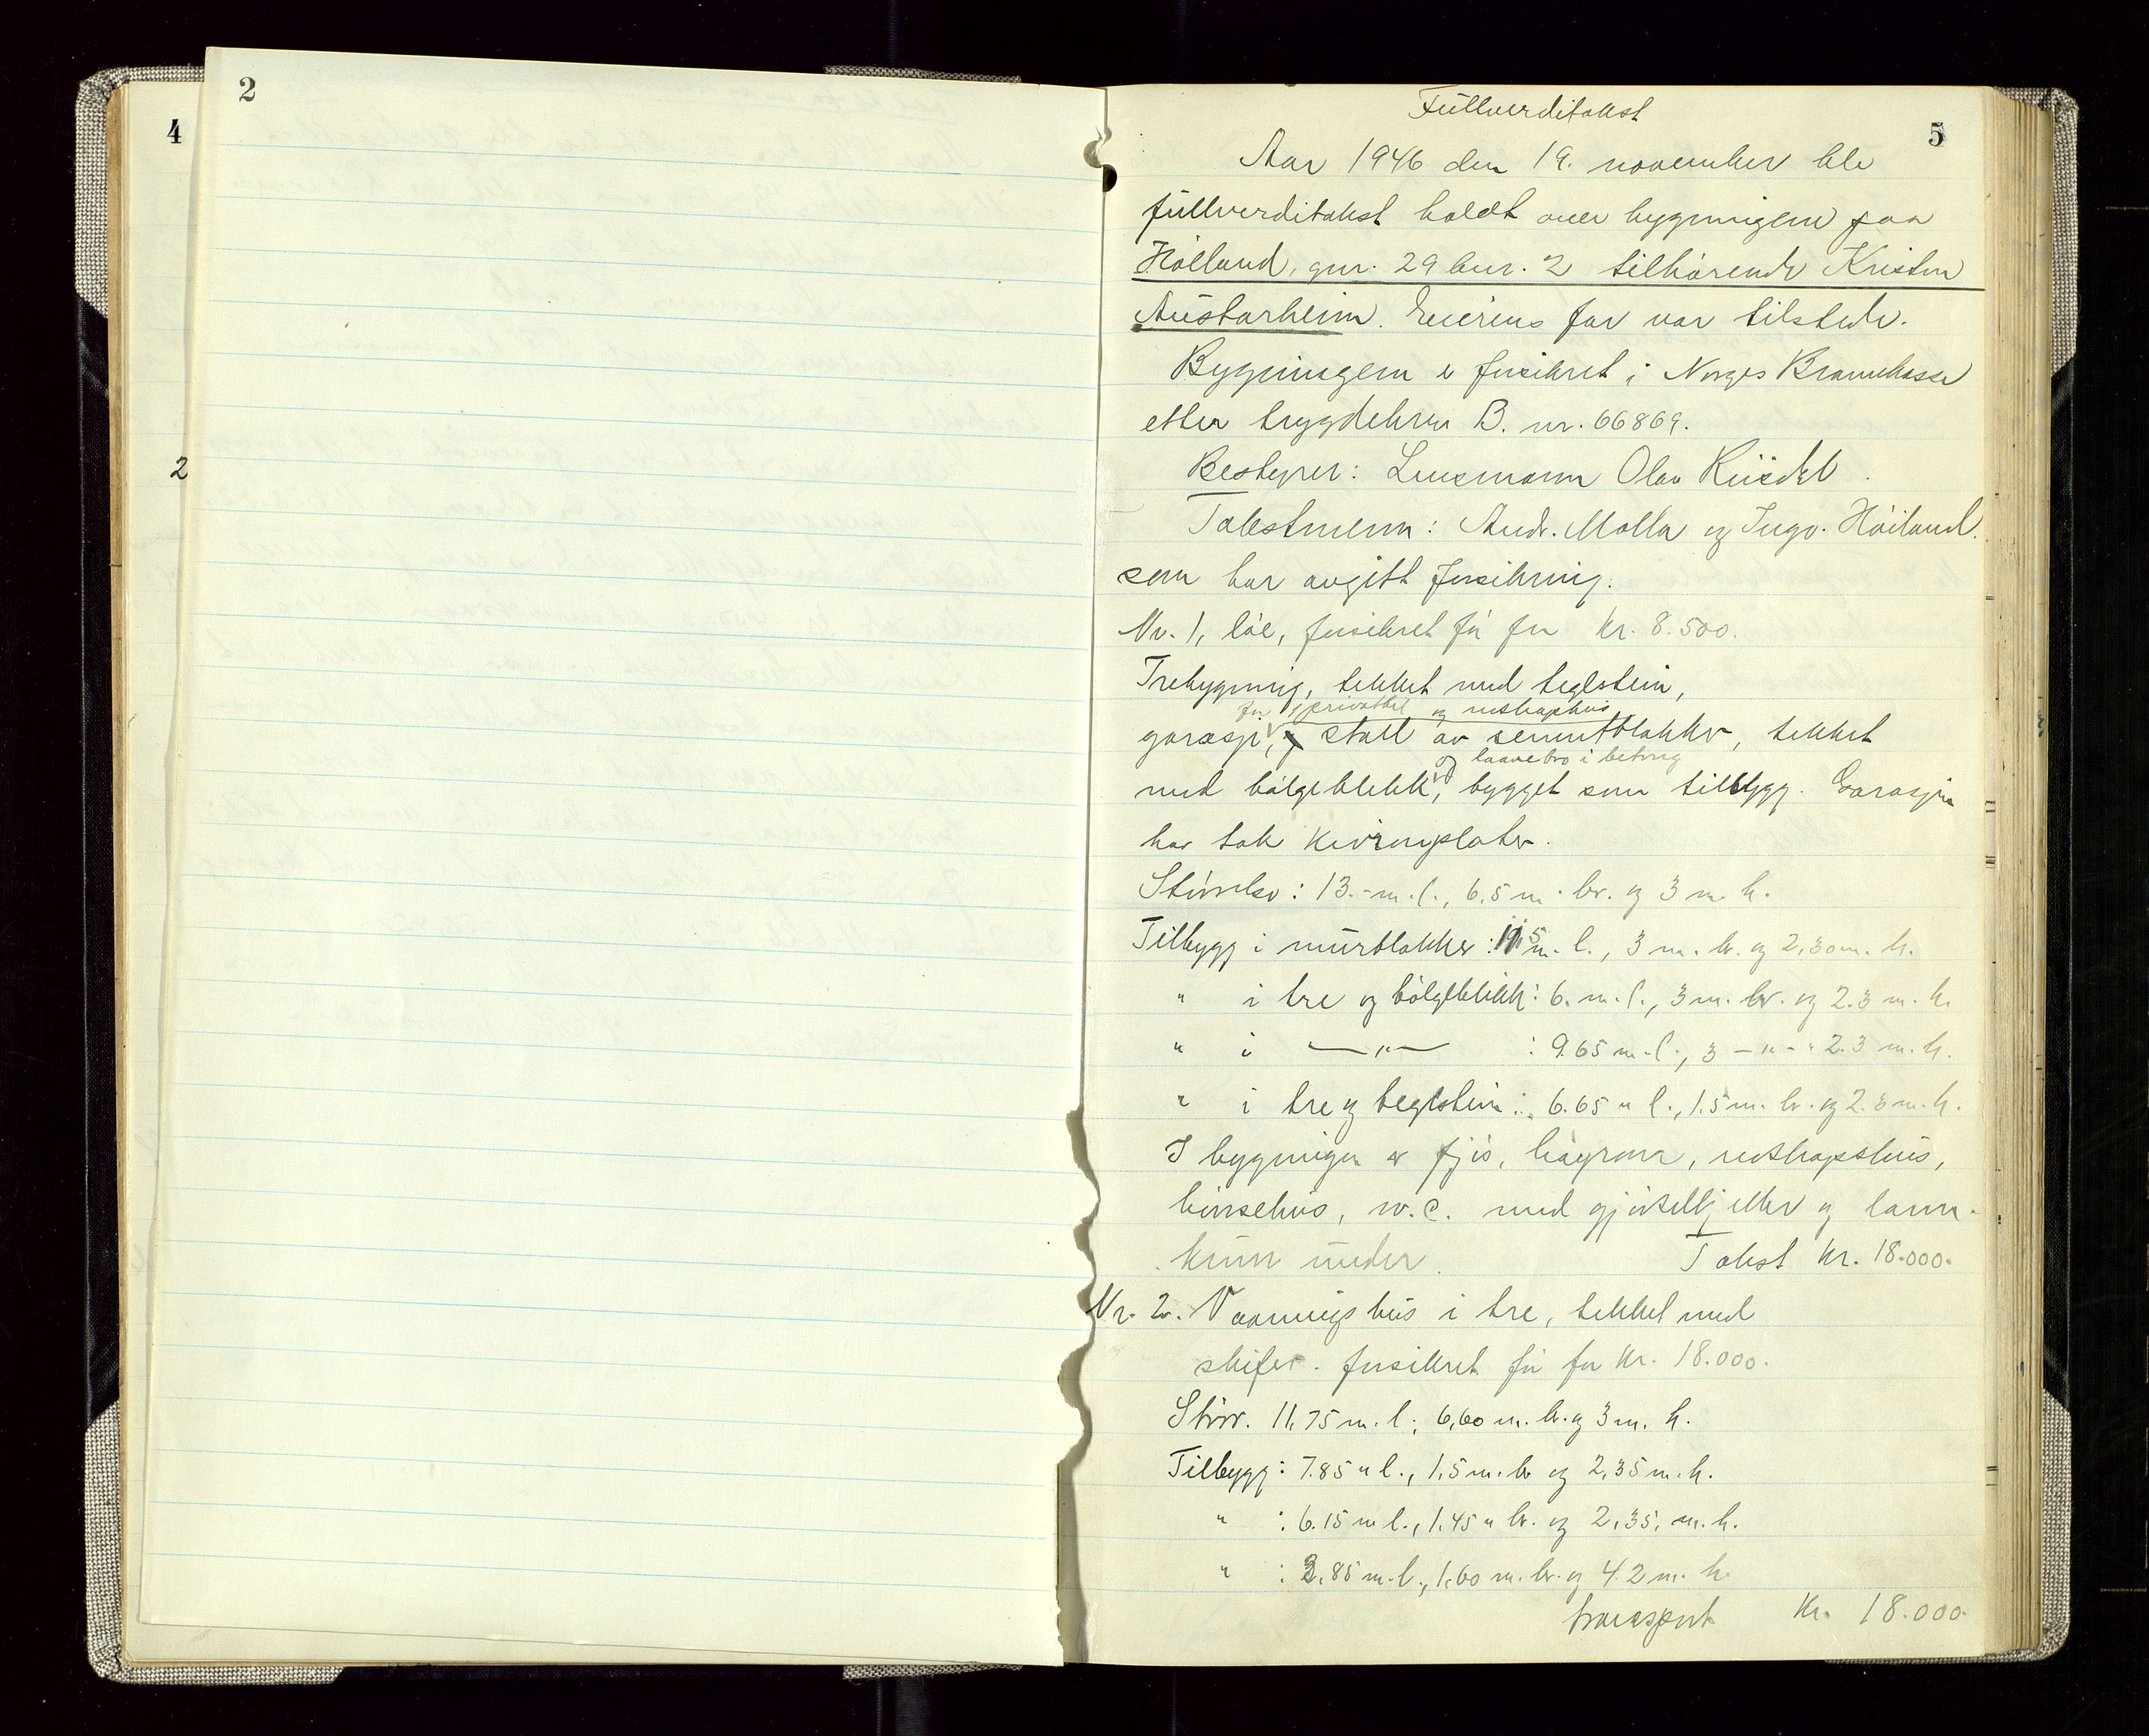 2
4
2
5
Fullverditakst
Aar 1946 den 19. november ble
fullverditakst holdt over bygningene paa
Høiland, gnr. 29 bnr. 2 tilhørende Kristen
Austarheim. Eierens far var tilstede.
Bygningene er forsikret i Norges Brannkasse
etter trygdebrev B. nr. 66869.
Bestyrer: Lensmann Olav Riisdal.
Takstmenn: Andr. Molla og Ingv. Høiland.
som har avgitt forsikring.
Nr. 1, løe, forsikret før for kr. 8.500.
Trebygning, tekket med teglstein,
for privatbil og redskaphus
garasje, stall av sementblokker, tekket
og laavebro i betong
med bølgeblekk, bygget som tilbygg. Garasjen
har tak av
Størrelse: 13.- m. l., 6.5 m. br. og 3 m. h.
Tilbygg i murblokker: m. l., 3 m. br. og 2,30 m. h.
" i tre og bølgeblikk: 6. m. l., 3 m. br. og 2.3 m. h.
" i —"— : 9.65 m. l., 3 —"— " 2.3 m. h.
" i tre og teglstein: 6.65 " l., 1.5 m. br. og 2.3 m. h.
I bygningen er fjøs, høyrom, redskapshus,
hønsehus, w.c. med gjødselkjeller og lann-
kum under. Takst kr. 18.000.
Nr. 2. Vaaningshus i tre, tekket med
skifer. forsikret før for kr. 18.000.
Størr. 11,75 m. l., 6,60 m. br. og 3 m. h.
Tilbygg: 7.85 " l., 1,5 m. br og 2,35 m. h.
" : 6.15 m l., 1,45 " br. og 2,35, m. h.
" : 3.85 m. l., 1,60 m. br. og 4.2 m. h.
transport kr. 18.000.